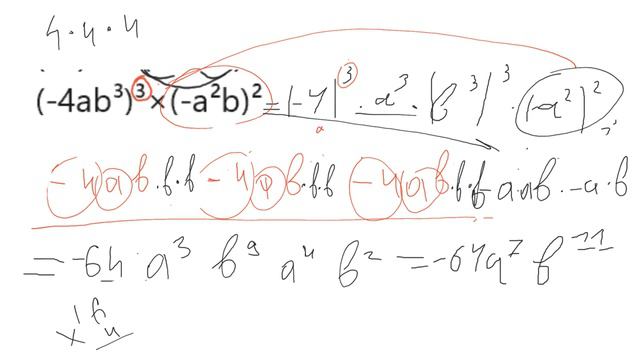 4·4·4
(-4ab³)³×(-a²b)² = (-4)³ · a³ · (b³)³ · (-a²)²
-4ab·b·b -4ab·b·b -4ab·b·b -a·ab·-a·b
= -64 a³ b⁹ a⁴ b² = -64a⁷ b¹¹
16
× 4